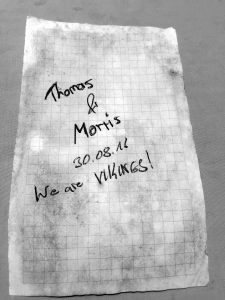 Thomas
&
Morris
30.08.16
We are VIKINGS!